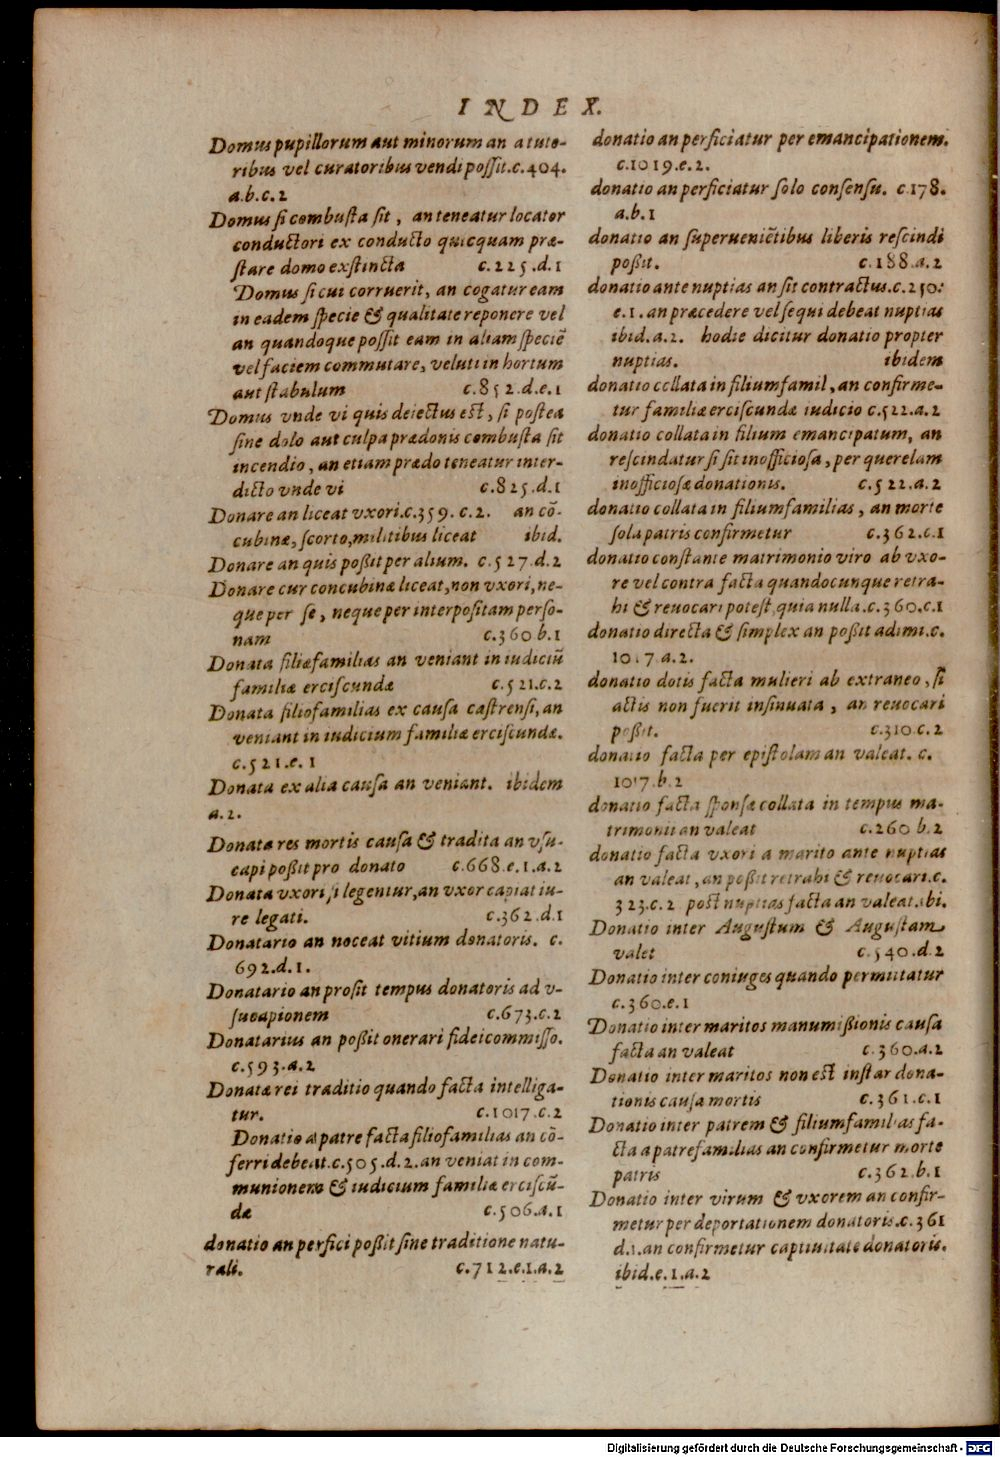 INDEX.
Domus pupillorum aut minorum an a tuto-
ribus vel curatoribus vendi poſſit.c.404.
a.b.c.2
Domus ſi combuſta ſit, an teneatur locator
conductori ex conducto quicquam præ-
ſtare domo exſtincta c.225.d.1
Domus ſi cui corruerit, an cogatur eam
in eadem ſpecie & qualitate reponere vel
an quandoque poſſit eam in aliam ſpeciē
vel faciem commutare, veluti in hortum
aut ſtabulum c.852.d.e.1
Domus vnde vi quis deiectus eſt, ſi poſtea
ſine dolo aut culpa prædonis combuſta ſit
incendio, an etiam prædo teneatur inter-
dicto vnde vi c.825.d.1
Donare an liceat vxori.c.359. c.2. an cō-
cubinæ, ſcorto, militibus liceat ibid.
Donare an quis poßit per alium. c.527.d.2
Donare cur concubinæ liceat, non vxori, ne-
que per ſe, neque per interpoſitam perſo-
nam c.360 b.1
Donata filiæfamilias an veniant in iudiciū
familiæ erciſcundæ c.521.c.2
Donata filiofamilias ex cauſa caſtrenſi, an
veniant in iudicium familiæ erciſcundæ.
c.521.e.1
Donata ex alia cauſa an veniant. ibidem
a.2.
Donata res mortis cauſa & tradita an vſu-
capi poßit pro donato c.668.e.1.a.2
Donata vxori ſi legentur, an vxor capiat iu-
re legati. c.362.d.1
Donatario an noceat vitium donatoris. c.
692.d.1.
Donatario an proſit tempus donatoris ad v-
ſucapionem c.673.c.2
Donatarius an poßit onerari fideicommiſſo.
c.593.a.2
Donatæ rei traditio quando facta intelliga-
tur. c.1017.c.2
Donatio a patre facta filiofamilias an cō-
ferri debeat.c.505.d.2.an veniat in com-
munionem & iudicium familiæ erciſcū-
dæ c.506.a.1
donatio an perfici poßit ſine traditione natu-
rali. c.712.e.1.a.2
donatio an perficiatur per emancipationem.
c.1019.e.2.
donatio an perficiatur ſolo conſenſu. c.178.
a.b.1
donatio an ſuperueniētibus liberis reſcindi
poßit. c.188.a.2
donatio ante nuptias an ſit contractus.c.250.
e.1.an præcedere vel ſequi debeat nuptias
ibid.a.2. hodie dicitur donatio propter
nuptias. ibidem
donatio collata in filiumfamil, an confirme-
tur familiæ erciſcundæ iudicio c.522.a.2
donatio collata in filium emancipatum, an
reſcindatur ſi ſit inofficioſa, per querelam
inofficioſæ donationis. c.522.a.2
donatio collata in filiumfamilias, an morte
ſola patris confirmetur c.362.c.1
donatio conſtante matrimonio viro ab vxo-
re vel contra facta quandocunque retra-
hi & reuocari poteſt, quia nulla.c.360.c.1
donatio directa & ſimplex an poßit adimi.c.
1017.a.2.
donatio dotis facta mulieri ab extraneo, ſi
actis non fuerit inſinuata, an reuocari
poßit. c.310.c.2
donatio facta per epiſtolam an valeat. c.
1017.b.2
donatio facta ſponſæ collata in tempus ma-
trimonii an valeat c.260 b.2
donatio facta vxori a marito ante nuptias
an valeat, an poßit retrahi & reuocari.c.
323.c.2 poſt nuptias facta an valeat.ibi.
Donatio inter Auguſtum & Auguſtam
valet c.540.d.2
Donatio inter coniuges quando permutatur
c.360.e.1
Donatio inter maritos manumißionis cauſa
facta an valeat c.360.a.2
Donatio inter maritos non eſt inſtar dona-
tionis cauſa mortis c.361.c.1
Donatio inter patrem & filiumfamilias fa-
cta a patrefamilias an confirmetur morte
patris c.362.b.1
Donatio inter virum & vxorem an confir-
metur per deportationem donatoris.c.361
d.1.an confirmetur captiuitate donatoris.
ibid.e.1.a.2
Digitalisierung gefördert durch die Deutsche Forschungsgemeinschaft - DFG